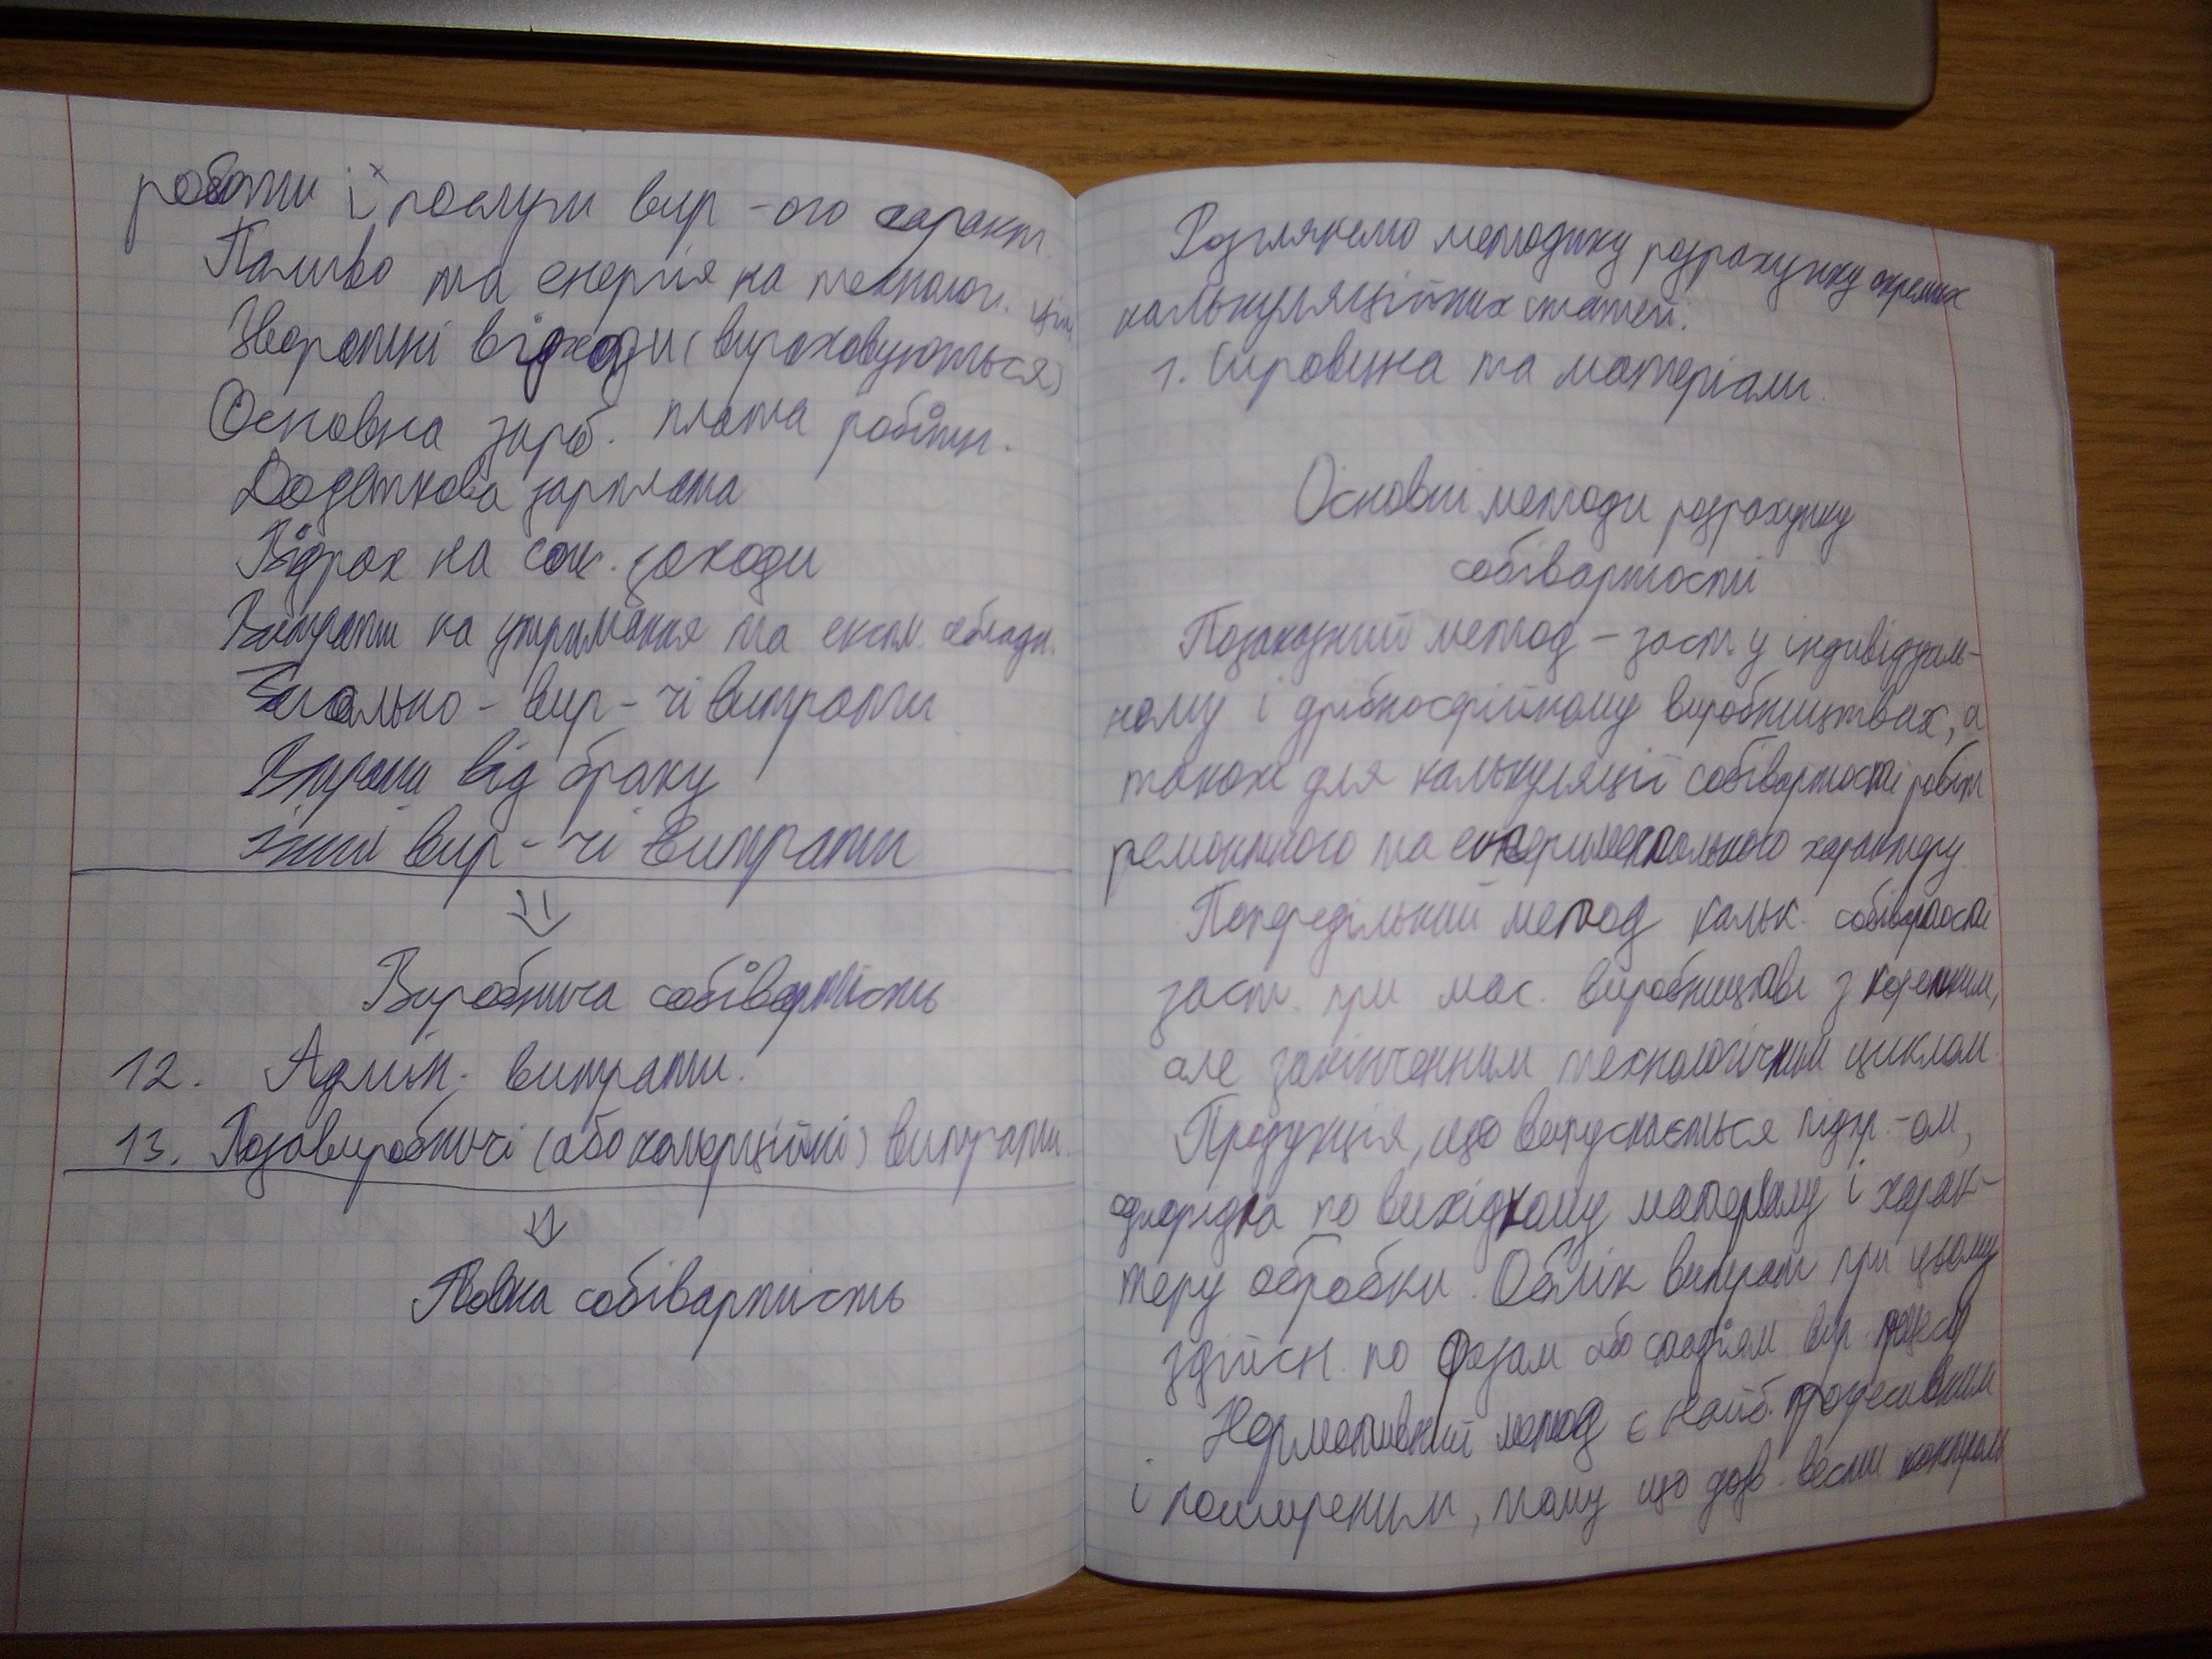 роботи і послуги вир-ого характ.
Паливо та енергія на технолог. цілі
Зворотні відходи (вираховуються)
Основна зарб. плата робітн.
Додаткова зарплата
Відрах на соц. заходи
Витрати на утримання та експл. обладн.
Загально-вир-чі витрати
Втрати від браку
Інші вир-чі витрати
Виробнича собівартість
12. Адмін. витрати.
13. Позавиробничі (або комерційні) витрати.
Повна собівартість
Розглянемо методику розрахунку окремих
калькуляційних статей.
1. Сировина та матеріали.
Основні методи розрахунку
собівартості
Позаказний метод – заст. у індивідуаль-
ному і дрібносерійному виробництвах, а
також для калькуляції собівартості робіт
ремонтного та експериментального характеру.
Попередільний метод кальк. собівартості
заст. при мас. виробництві з коротким,
але закінченним технологічним циклом.
Продукція, що випускається підпр-ом,
однорідна по вихідному матеріалу і харак-
теру обробки. Облік витрат при цьому
здійсн. по фазам або стадіям вир. процесу
Нормативний метод є найб. прогресивним
і поширеним, тому що дозв. вести контроль